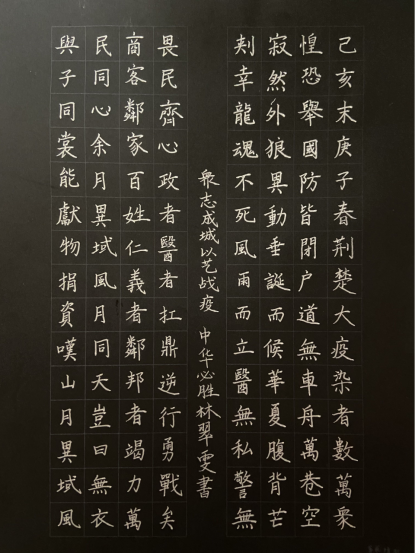 己亥末庚子春荆楚大疫染者數萬衆
惶恐舉國防皆閉户道無車舟萬巷空
寂然外狼異動垂誕而候華夏腹背芒
刾幸龍魂不死風雨而立醫無私警無
衆志成城以艺战疫 中华必胜林翠雯書
畏民齊心政者醫者扛鼎逆行勇戰矣
商客鄰家百姓仁義者鄰邦者竭力萬
民同心余月異域風月同天豈曰無衣
與子同裳能獻物捐資嘆山月異域風